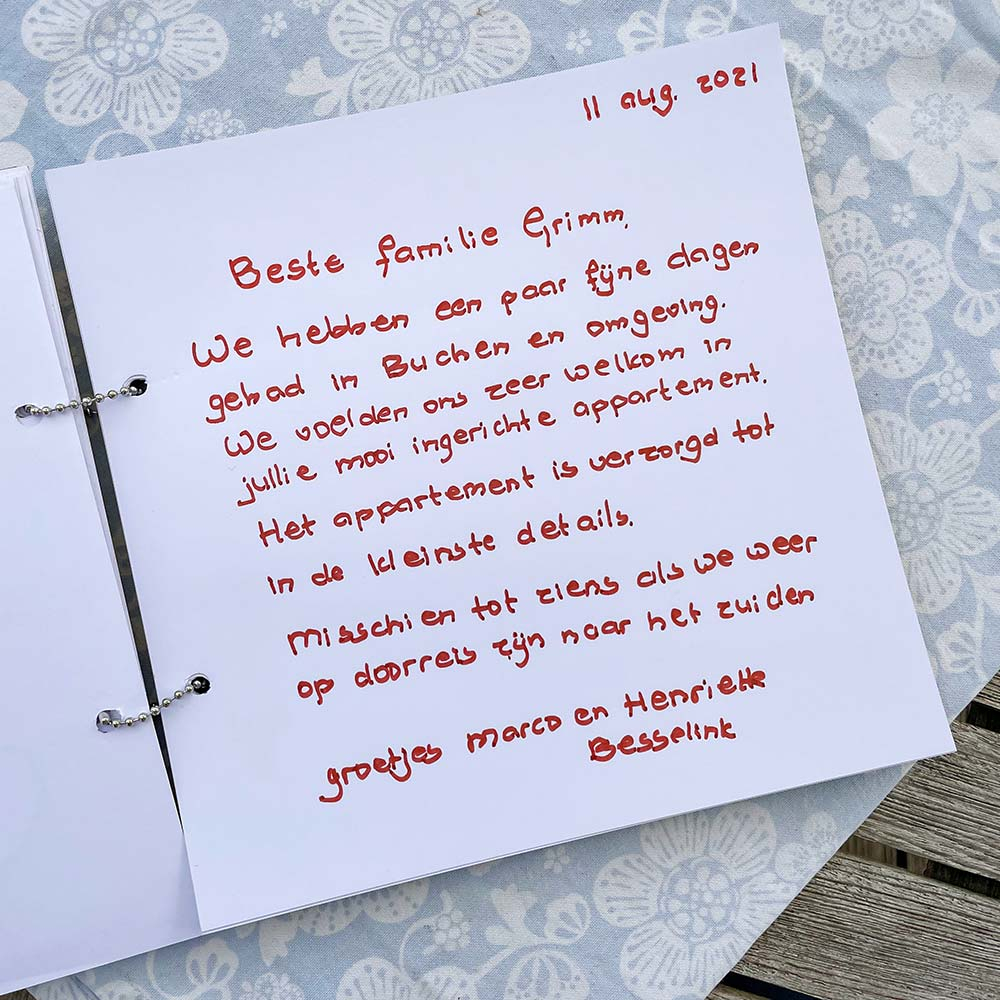 11 aug. 2021
Beste familie Grimm,
We hebben een paar fijne dagen
gehad in Buchen en omgeving.
We voelden ons zeer welkom in
jullie mooi ingerichte appartement.
Het appartement is verzorgd tot
in de kleinste details.
Misschien tot ziens als we weer
op doorreis zijn naar het zuiden
groetjes Marco en Henriette
Besselink